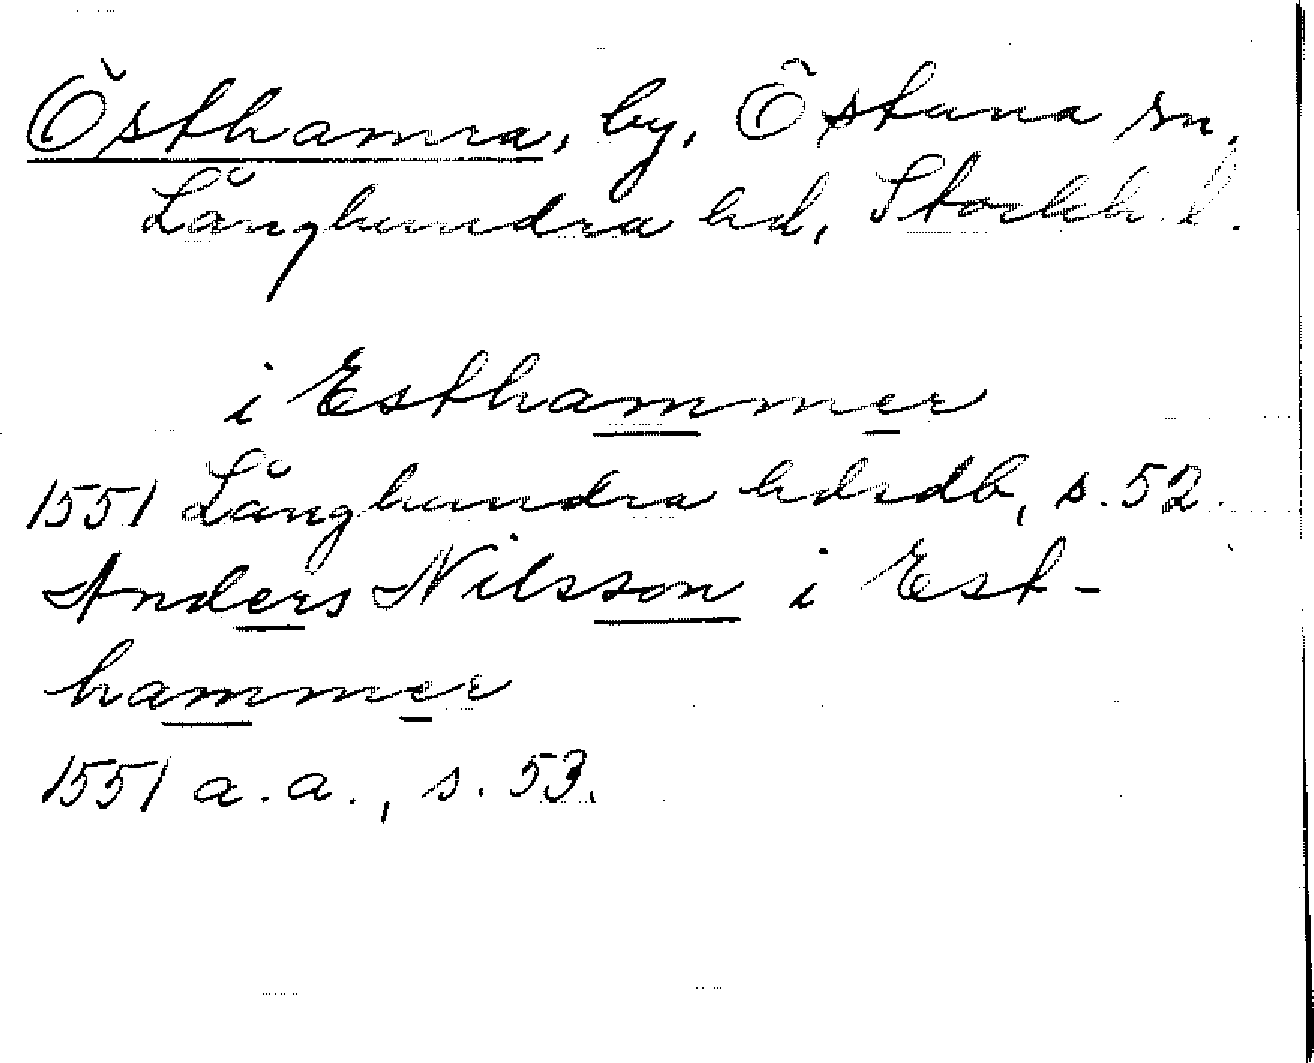 Östhamra, by, Östuna sn,
Långhundra hd, Stockh. l.
i Esthammer
1551 Långhundra hdrdb, s. 52.
Anders Nilsson i Est-
hammer
1551 a.a., s. 53.